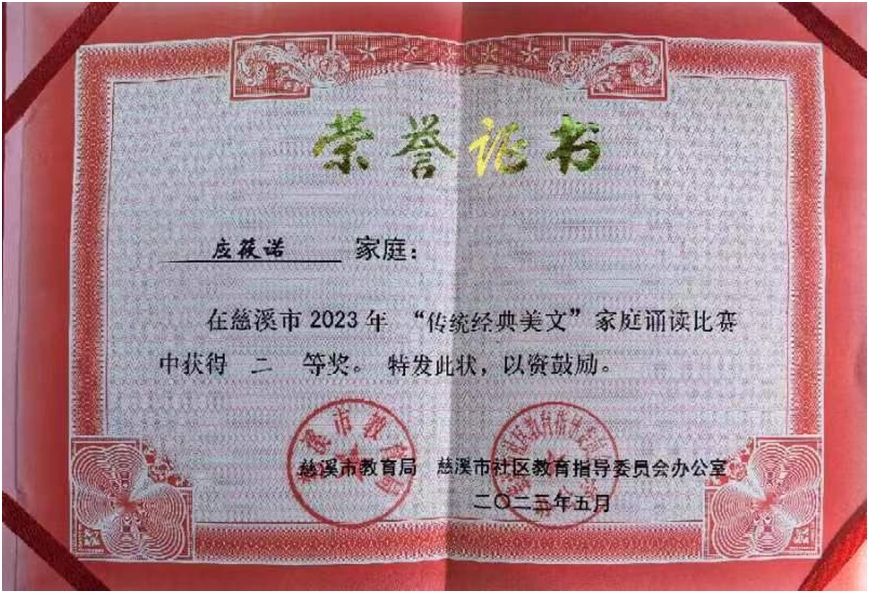 荣誉证书
应筱诺 家庭：
在慈溪市2023年“传统经典美文”家庭诵读比赛
中获得 二 等奖。特发此状，以资鼓励。
慈溪市教育局 慈溪市社区教育指导委员会办公室
二〇二三年五月
慈溪市教育局